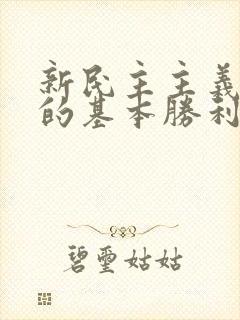 新民主主義
的基本勝利
碧璽姑姑